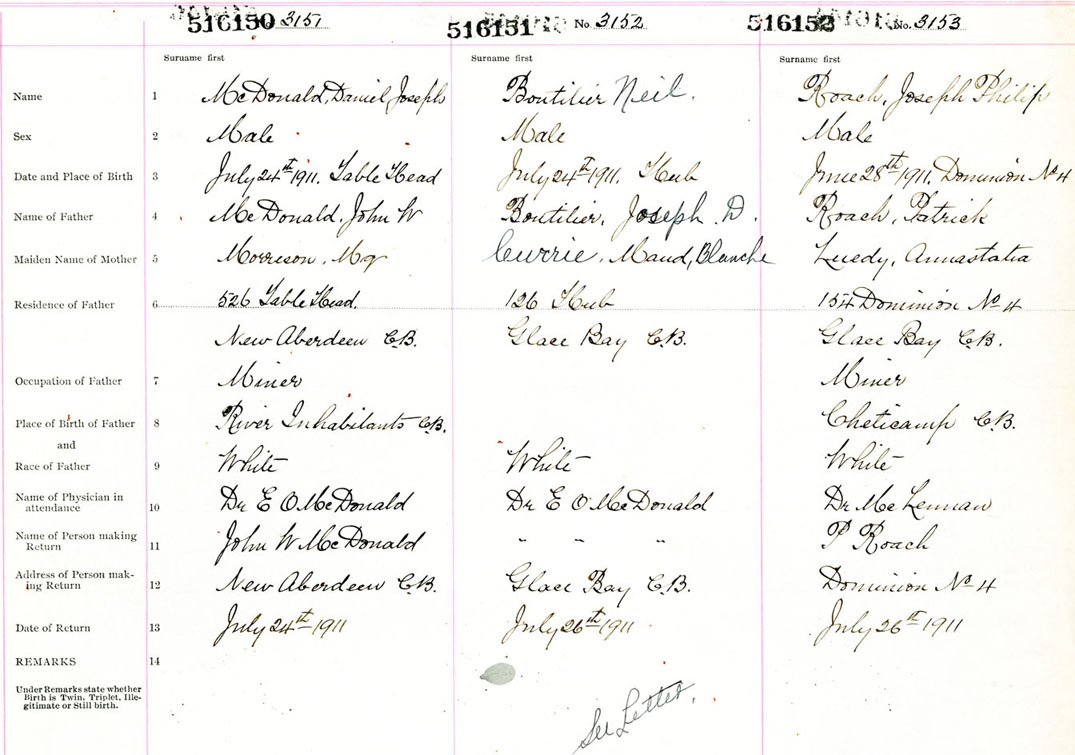 516150 No. 3151 516151 No. 3152 516152 No. 3153
Surname first Surname first Surname first
Name 1 McDonald, Daniel Joseph Boutilier Neil. Roach, Joseph Philip
Sex 2 Male Male Male
Date and Place of Birth 3 July 24th 1911. Table Head July 24th 1911. Hub June 28th 1911, Dominion No 4
Name of Father 4 McDonald, John W Boutilier, Joseph D. Roach, Patrick
Maiden Name of Mother 5 Morrison, Mg Currie, Maud, Blanche Luedy, Annastatia
Residence of Father 6 526 Table Head. 126 Hub 154 Dominion No 4
New Aberdeen C.B. Glace Bay C.B. Glace Bay C.B.
Occupation of Father 7 Miner Miner
Place of Birth of Father 8 River Inhabitants C.B. Cheticamp C.B.
and
Race of Father 9 White White White
Name of Physician in
attendance 10 Dr E O McDonald Dr E O McDonald Dr McLennan
Name of Person making
Return 11 John W McDonald " " " P Roach
Address of Person mak-
ing Return 12 New Aberdeen C.B. Glace Bay C.B. Dominion No 4
Date of Return 13 July 24th 1911 July 26th 1911 July 26th 1911
REMARKS 14
Under Remarks state whether
Birth is Twin, Triplet, Ille-
gitimate or Still birth.
See Letter.